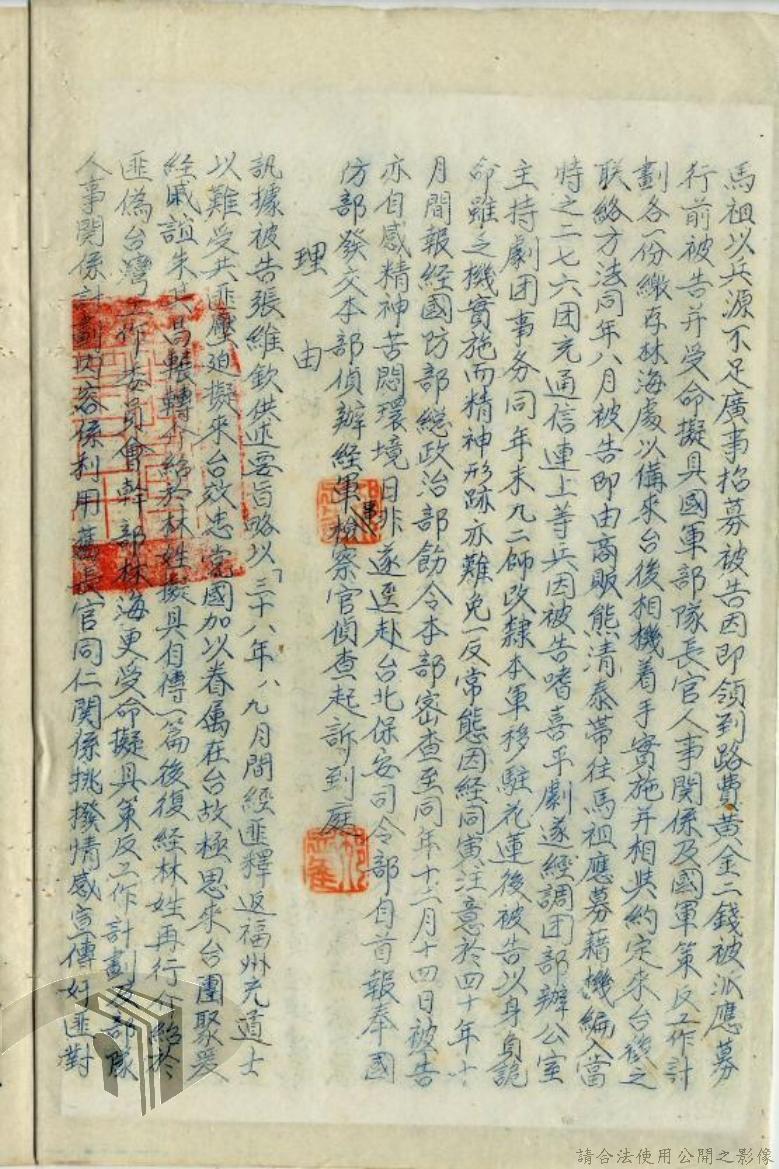 馬祖以兵源不足廣事招募被告因即領到路費黃金二錢被派應募
行前被告并受命擬具國軍部隊長官人事関係及國軍策反工作計
劃各一份繳存林海處以備來台後相機着手實施并相與約定來台後之
联絡方法同年八月被告即由商販熊清泰帶往馬祖應募藉機編入當
時之二七六团充通信連上等兵因被告嗜喜平劇遂經調团部辦公室
主持劇团事务同年末九二師改隸本軍移駐花蓮後被告以身負詭
命雖乏機實施而精神形跡亦難免一反常態因経同寅注意於四十年十
月間報経國防部總政治部飭令本部密查至同年十二月十四日被告
亦自感精神苦悶環境日非遂逕赴台北保安司令部自首報奉國
防部發交本部偵辦経軍事檢察官偵查起訴到庭
理由
訊據被告張維欽供述要旨略以「三十八年八、九月間經匪釋返福州充道士
以難受共匪壓迫擬來台效忠党國加以眷属在台故極思來台團聚爰
経戚誼朱其昌輾轉介紹於林姓擬具自傳一篇後復経林姓再行介紹於
匪偽台灣工作委員會幹部林海更受命擬具策反工作計劃及部隊
人事関係計劃内容係利用舊長官同仁関係挑撥情感宣傳奸匪對
請合法使用公開之影像